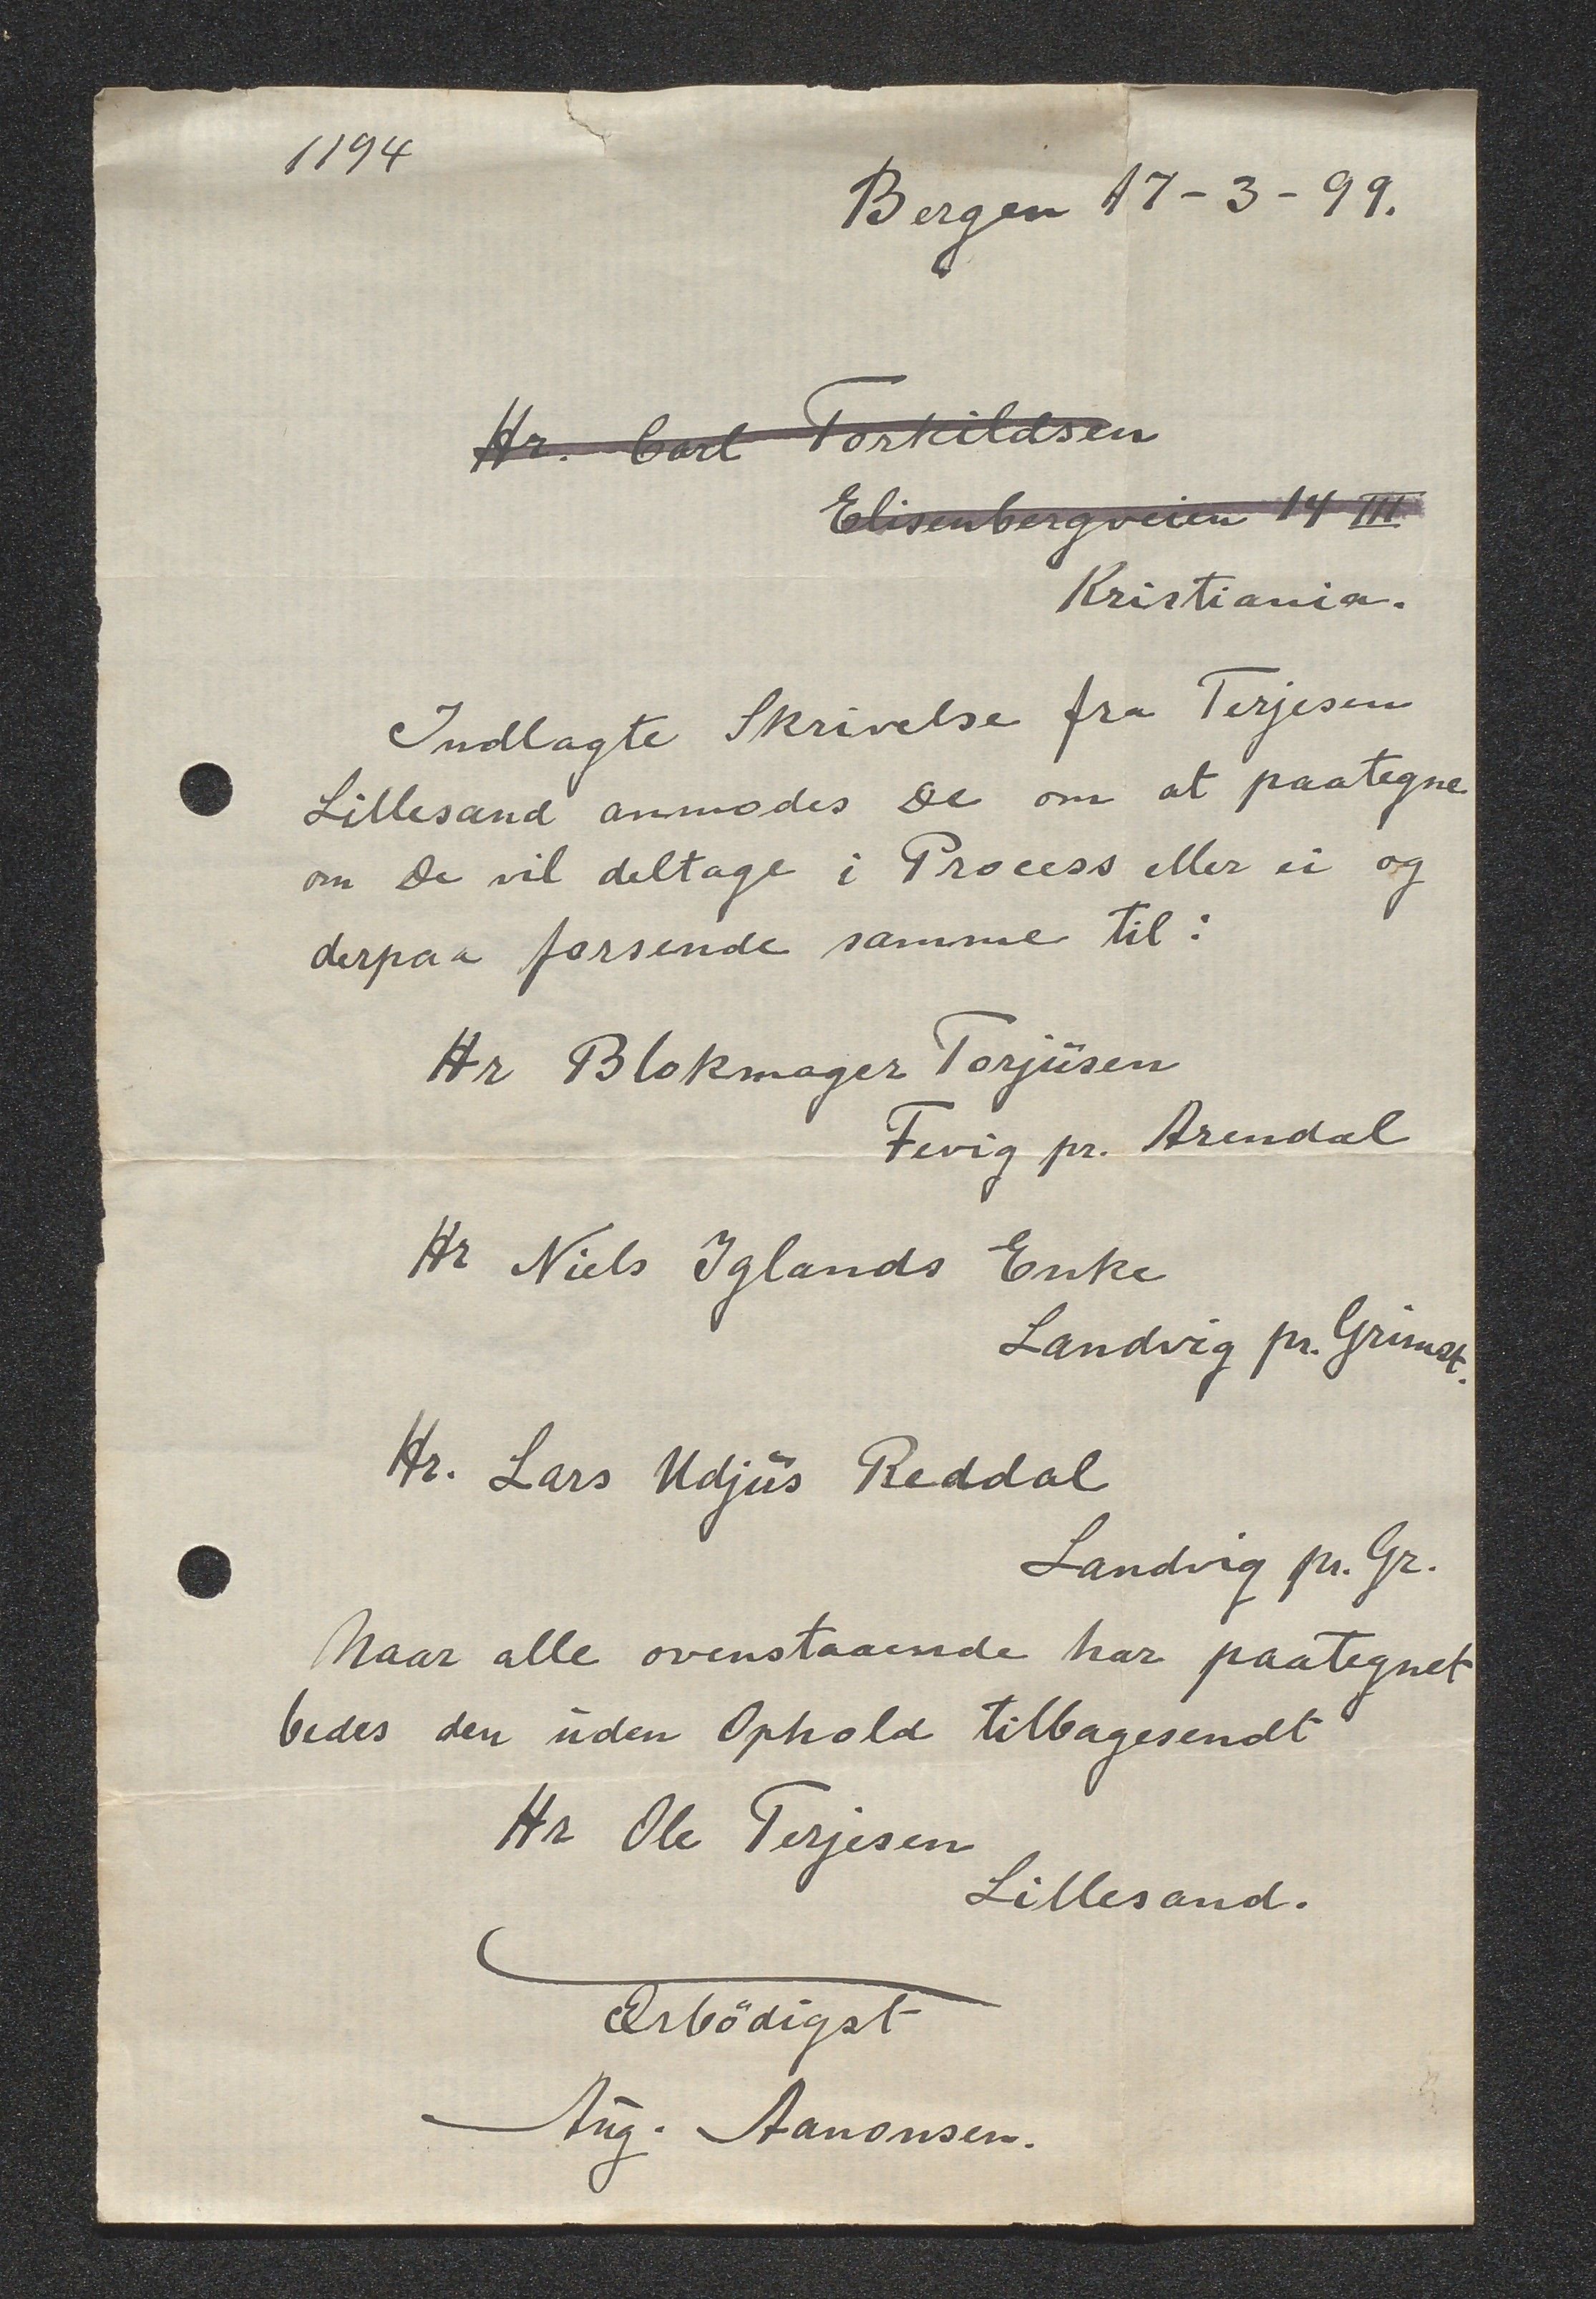 1194
Bergen 17-3-99.
Hr. Carl Torkildsen
Elisenbergveien 14 III
Kristiania.
Indlagte Skrivelse fra Terjesen
Lillesand anmodes De om at paategne
om De vil deltage i Process eller ei og
derpaa forsende samme til:
Hr Blokmager Torjüsen
Fevig pr. Arendal
Hr Niels Iglands Enke
Landvig pr. Grimst.
Hr. Lars Udjüs Reddal
Landvig pr. Gr.
Naar alle ovenstaaende har paategnet
bedes den üden Ophold tilbagesendt
Hr Ole Terjesen
Lillesand.
Ærbödigst
Aüg. Aanonsen.